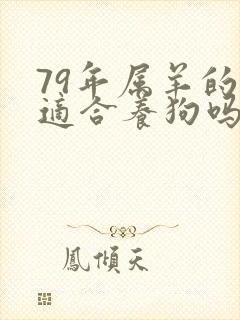 79年属羊的
適合養狗吗
鳳傾天